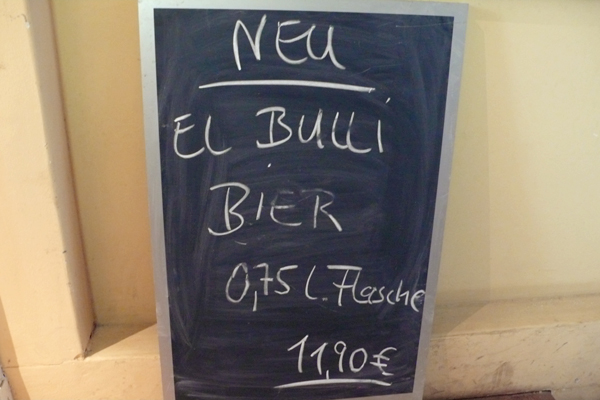 NEU
EL BULLI
BIER
0,75 l. Flasche
11,90 €